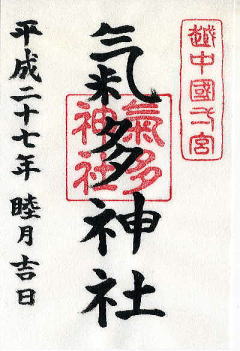 越中國一宮
氣多神社
氣多神社
平成二十七年 睦月吉日